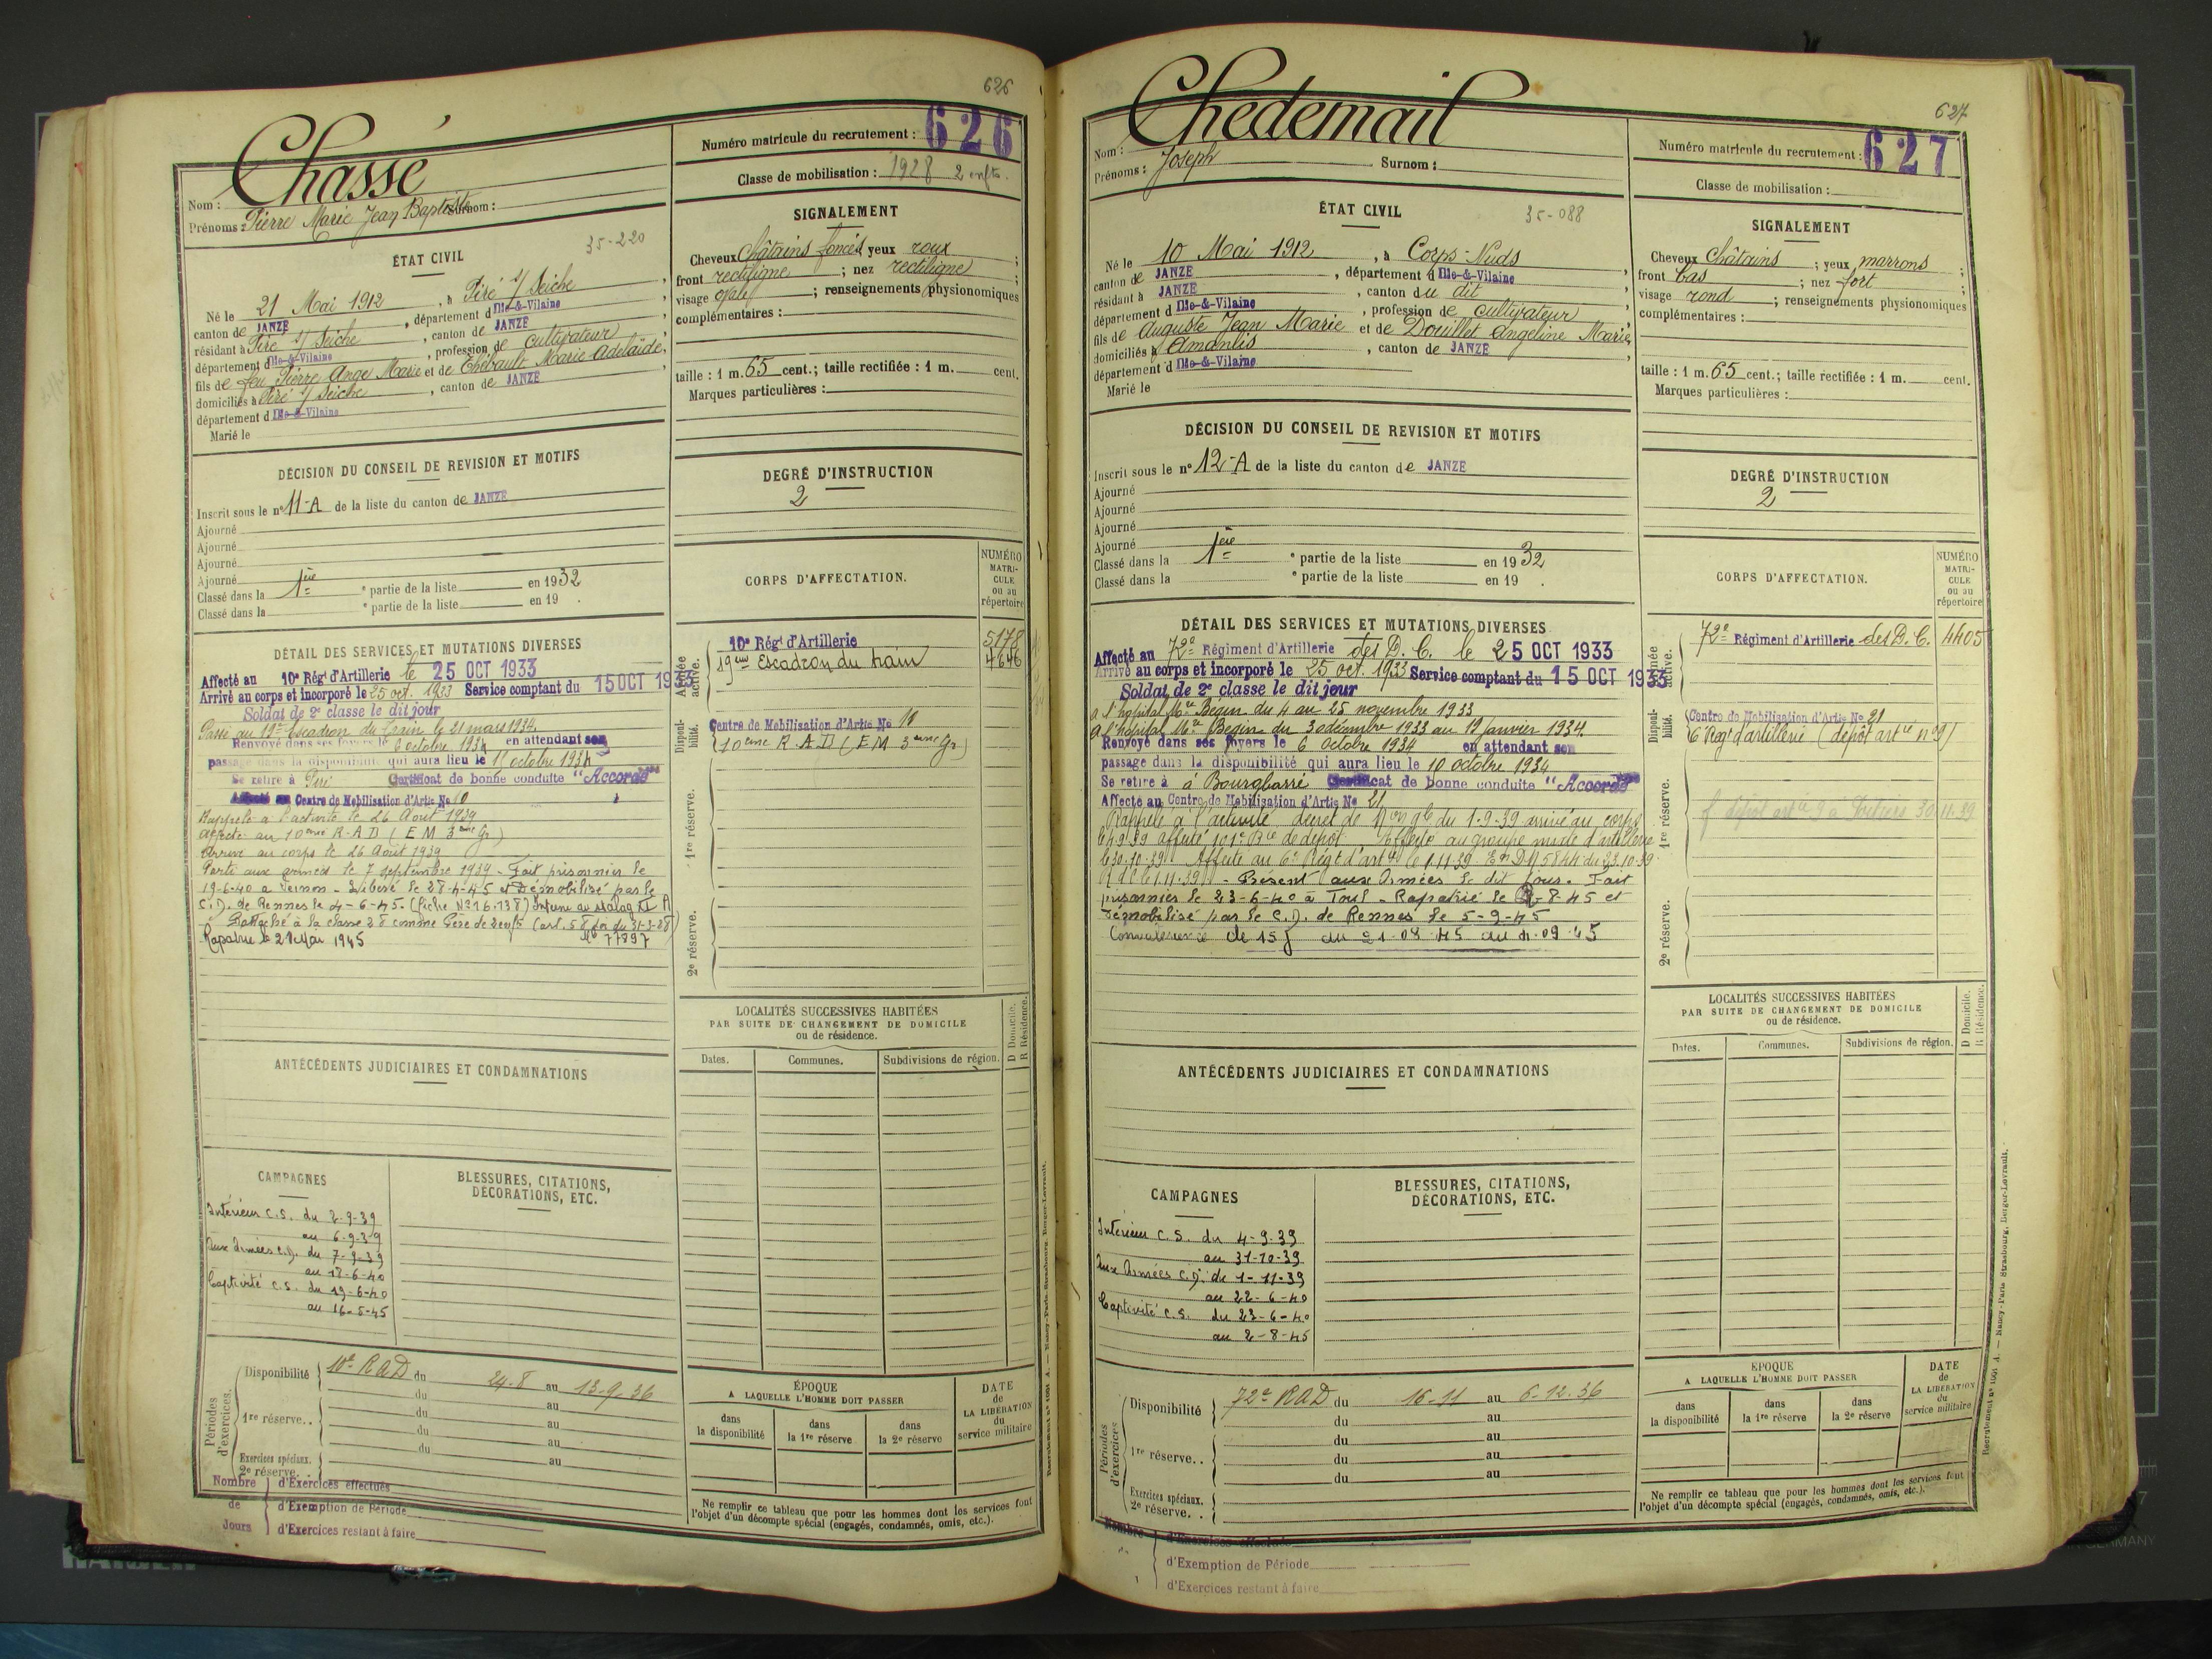 626
Chassé
Nom :
Prénoms : Pierre Marie Jean Baptiste Surnom :
Numéro matricule du recrutement : 626
Classe de mobilisation : 1928 2 enfts.
ÉTAT CIVIL
35-220
Né le 21 Mai 1912, à Piré s/ Seiche,
canton de JANZÉ, département d'Ille-&-Vilaine,
résidant à Piré s/ Seiche, canton de JANZÉ,
département d'Ille-&-Vilaine, profession de cultivateur,
fils de feu Pierre Ange Marie et de Thébault Marie Adelaïde,
domiciliés à Piré s/ Seiche, canton de JANZÉ,
département d'Ille-&-Vilaine
Marié le
SIGNALEMENT
Cheveux Châtains foncés yeux roux ;
front rectiligne ; nez rectiligne ;
visage ovale ; renseignements physionomiques
complémentaires :
taille : 1 m. 65 cent.; taille rectifiée : 1 m. cent.
Marques particulières :
DÉCISION DU CONSEIL DE REVISION ET MOTIFS
Inscrit sous le n° 11-A de la liste du canton de JANZÉ
Ajourné
Ajourné
Ajourné
Ajourné
Classé dans la 1ère e partie de la liste en 1932
Classé dans la e partie de la liste en 19 .
DEGRÉ D'INSTRUCTION
2
DÉTAIL DES SERVICES ET MUTATIONS DIVERSES
Affecté au 10e Régt d'Artillerie le 25 OCT 1933
Arrivé au corps et incorporé le 25 oct. 1933 Service comptant du 15 OCT 1933
Soldat de 2e classe le dit jour
Passé au 19e Escadron du Train le 21 mars 1934.
Renvoyé dans ses foyers le 6 octobre 1934 en attendant son
passage dans la disponibilité qui aura lieu le 1 octobre 1934
Se retire à Piré Certificat de bonne conduite "Accordé"
Affecté au Centre de Mobilisation d'Artie No 10
Rappelé à l'activité le 26 Août 1939
affecté au 10ème R.A.D (E M 3ème Gr)
Arrivé au corps le 26 Août 1939
Parti aux armées le 7 septembre 1939 - Fait prisonnier le
19-6-40 à Vernon - Libéré le 28-4-45 et Démobilisé par le
C.D. de Rennes le 4-6-45. (fiche No 16.138) Interné au stalag XI A
Rattaché à la classe 28 comme Père de 2 enfts (art. 58 loi du 31-3-28)
Rapatrié le 21 Mai 1945 No 77897
CORPS D'AFFECTATION.
NUMÉRO MATRICULE ou au répertoire
Armée active.
10e Régt d'Artillerie 5178
19ème Escadron du train 4646
Disponibilité.
Centre de Mobilisation d'Artie No 10
10ème R.A.D (E M 3ème Gr)
1re réserve.
2e réserve.
LOCALITÉS SUCCESSIVES HABITÉES
PAR SUITE DE CHANGEMENT DE DOMICILE
ou de résidence.
Dates. Communes. Subdivisions de région. D Domicile. R Résidence.
ANTÉCÉDENTS JUDICIAIRES ET CONDAMNATIONS
CAMPAGNES
Intérieur C.S. du 2-9-39
au 6-9-39
Aux Armées C.D. du 7-9-39
au 18-6-40
Captivité C.S. du 19-6-40
au 16-5-45
BLESSURES, CITATIONS,
DÉCORATIONS, ETC.
Périodes d'exercices.
Disponibilité 10e RAD du 24-8 au 13-9-36
du au
1re réserve.. du au
du au
du au
Exercices spéciaux.
2e réserve. .
Nombre de Jours
d'Exercices effectués
d'Exemption de Période
d'Exercices restant à faire
ÉPOQUE
A LAQUELLE L'HOMME DOIT PASSER
dans la disponibilité
dans la 1re réserve
dans la 2e réserve
DATE de LA LIBÉRATION du service militaire
Ne remplir ce tableau que pour les hommes dont les services font
l'objet d'un décompte spécial (engagés, condamnés, omis, etc.).
627
Chedemail
Nom :
Prénoms : Joseph Surnom :
Numéro matricule du recrutement : 627
Classe de mobilisation :
ÉTAT CIVIL
35-088
Né le 10 Mai 1912, à Corps-Nuds,
canton de JANZÉ, département d'Ille-&-Vilaine,
résidant à JANZÉ, canton du dit,
département d'Ille-&-Vilaine, profession de cultivateur,
fils de Auguste Jean Marie et de Douillet Angeline Marie,
domiciliés à Amanlis, canton de JANZÉ,
département d'Ille-&-Vilaine
Marié le
SIGNALEMENT
Cheveux Châtains ; yeux marrons ;
front bas ; nez fort ;
visage rond ; renseignements physionomiques
complémentaires :
taille : 1 m. 65 cent.; taille rectifiée : 1 m. cent.
Marques particulières :
DÉCISION DU CONSEIL DE REVISION ET MOTIFS
Inscrit sous le n° 12-A de la liste du canton de JANZÉ
Ajourné
Ajourné
Ajourné
Ajourné
Classé dans la 1ère e partie de la liste en 1932
Classé dans la e partie de la liste en 19 .
DEGRÉ D'INSTRUCTION
2
DÉTAIL DES SERVICES ET MUTATIONS DIVERSES
Affecté au 72e Régiment d'Artillerie des D. C. le 25 OCT 1933
Arrivé au corps et incorporé le 25 oct. 1933 Service comptant du 15 OCT 1933
Soldat de 2e classe le dit jour
a l'hôpital Mre Begin du 4 au 25 novembre 1933
a l'hôpital Mre Begin du 30 décembre 1933 au 19 janvier 1934
Renvoyé dans ses foyers le 6 octobre 1934 en attendant son
passage dans la disponibilité qui aura lieu le 10 octobre 1934
Se retire à à Bourgbarré Certificat de bonne conduite "Accordé"
Affecté au Centre de Mobilisation d'Artie No 21
Rappelé à l'activité décret de Mon gle du 1-9-39 arrivé au corps
le 4.9.39 affecté 101e Bie de dépôt. Affecté au groupe mixte d'artillerie
le 30.10.39. Affecté au 6e Régt d'artie le 1.11.39. 5844 du 23.10.39
le 1.11.39 - Présent aux Armées le dit jour. Fait
prisonnier le 23-6-40 à Toul - Rapatrié le 2-8-45 et
démobilisé par le C.D. de Rennes le 5-9-45
Convalescence de 15 j du 21.08.45 au 4.09.45
CORPS D'AFFECTATION.
NUMÉRO MATRICULE ou au répertoire
Armée active.
72e Régiment d'Artillerie des D. C. 4405
Disponibilité.
Centre de Mobilisation d'Artie No 21
6e Regt d'artillerie (dépôt artie n°9)
1re réserve.
dépôt artie 9 à Poitiers 30.11.39
2e réserve.
LOCALITÉS SUCCESSIVES HABITÉES
PAR SUITE DE CHANGEMENT DE DOMICILE
ou de résidence.
Dates. Communes. Subdivisions de région. D Domicile. R Résidence.
ANTÉCÉDENTS JUDICIAIRES ET CONDAMNATIONS
CAMPAGNES
Intérieur C.S. du 4-9-39
au 31-10-39
Aux Armées C.D. du 1-11-39
au 22-6-40
Captivité C.S. du 23-6-40
au 2-8-45
BLESSURES, CITATIONS,
DÉCORATIONS, ETC.
Périodes d'exercices
Disponibilité 72e RAD du 16-11 au 6-12-36
du au
1re réserve.. du au
du au
du au
Exercices spéciaux.
2e réserve. .
Nombre
d'Exercices effectués
d'Exemption de Période
d'Exercices restant à faire
ÉPOQUE
A LAQUELLE L'HOMME DOIT PASSER
dans la disponibilité
dans la 1re réserve
dans la 2e réserve
DATE de LA LIBÉRATION du service militaire
Ne remplir ce tableau que pour les hommes dont les services font
l'objet d'un décompte spécial (engagés, condamnés, omis, etc.).
Recrutement n° 1001 A. — Nancy-Paris-Strasbourg, Berger-Levrault.